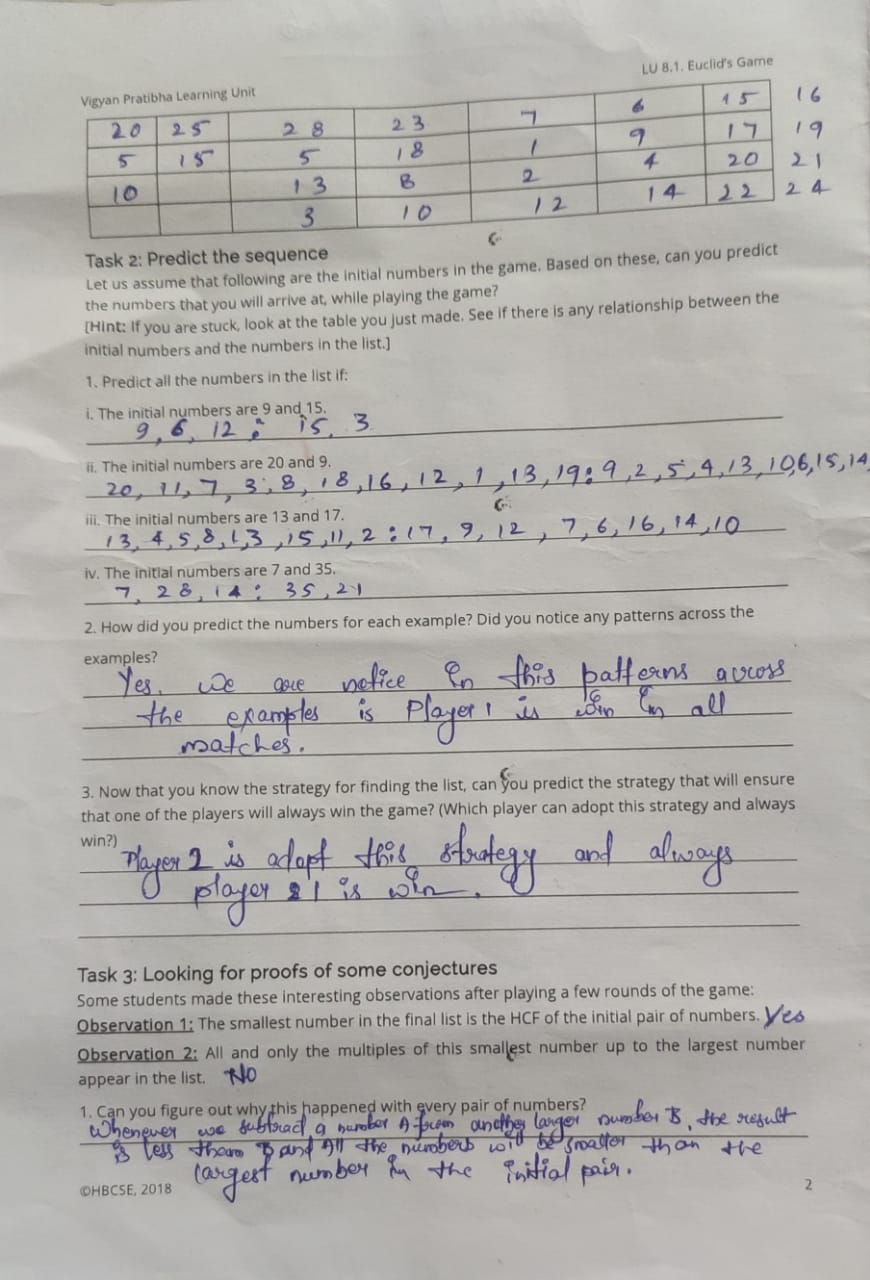 LU 8.1. Euclid's Game
Vigyan Pratibha Learning Unit
20 25 28 23 7 6 15 16
5 15 5 18 1 9 17 19
10 13 8 2 4 20 21
3 10 12 14 22 24
Task 2: Predict the sequence
Let us assume that following are the initial numbers in the game. Based on these, can you predict
the numbers that you will arrive at, while playing the game?
[Hint: If you are stuck, look at the table you just made. See if there is any relationship between the
initial numbers and the numbers in the list.]
1. Predict all the numbers in the list if:
i. The initial numbers are 9 and 15.
9, 6, 12 : 15, 3
ii. The initial numbers are 20 and 9.
20, 11, 7, 3, 8, 18, 16, 12, 1, 13, 19 : 9, 2, 5, 4, 13, 10, 6, 15, 14
iii. The initial numbers are 13 and 17.
13, 4, 5, 8, 1, 3, 15, 11, 2 : 17, 9, 12, 7, 6, 16, 14, 10
iv. The initial numbers are 7 and 35.
7, 28, 14 : 35, 21
2. How did you predict the numbers for each example? Did you notice any patterns across the
examples?
Yes. we are notice in this patterns across
the examples is Player 1 is win in all
matches.
3. Now that you know the strategy for finding the list, can you predict the strategy that will ensure
that one of the players will always win the game? (Which player can adopt this strategy and always
win?)
Player 2 is adopt this strategy and always
player 1 is win.
Task 3: Looking for proofs of some conjectures
Some students made these interesting observations after playing a few rounds of the game:
Observation 1: The smallest number in the final list is the HCF of the initial pair of numbers. Yes
Observation 2: All and only the multiples of this smallest number up to the largest number
appear in the list. NO
1. Can you figure out why this happened with every pair of numbers?
Whenever we subtract a number A from another larger number B, the result
is less than B and all the numbers will be smaller than the
largest number in the initial pair.
©HBCSE, 2018
2